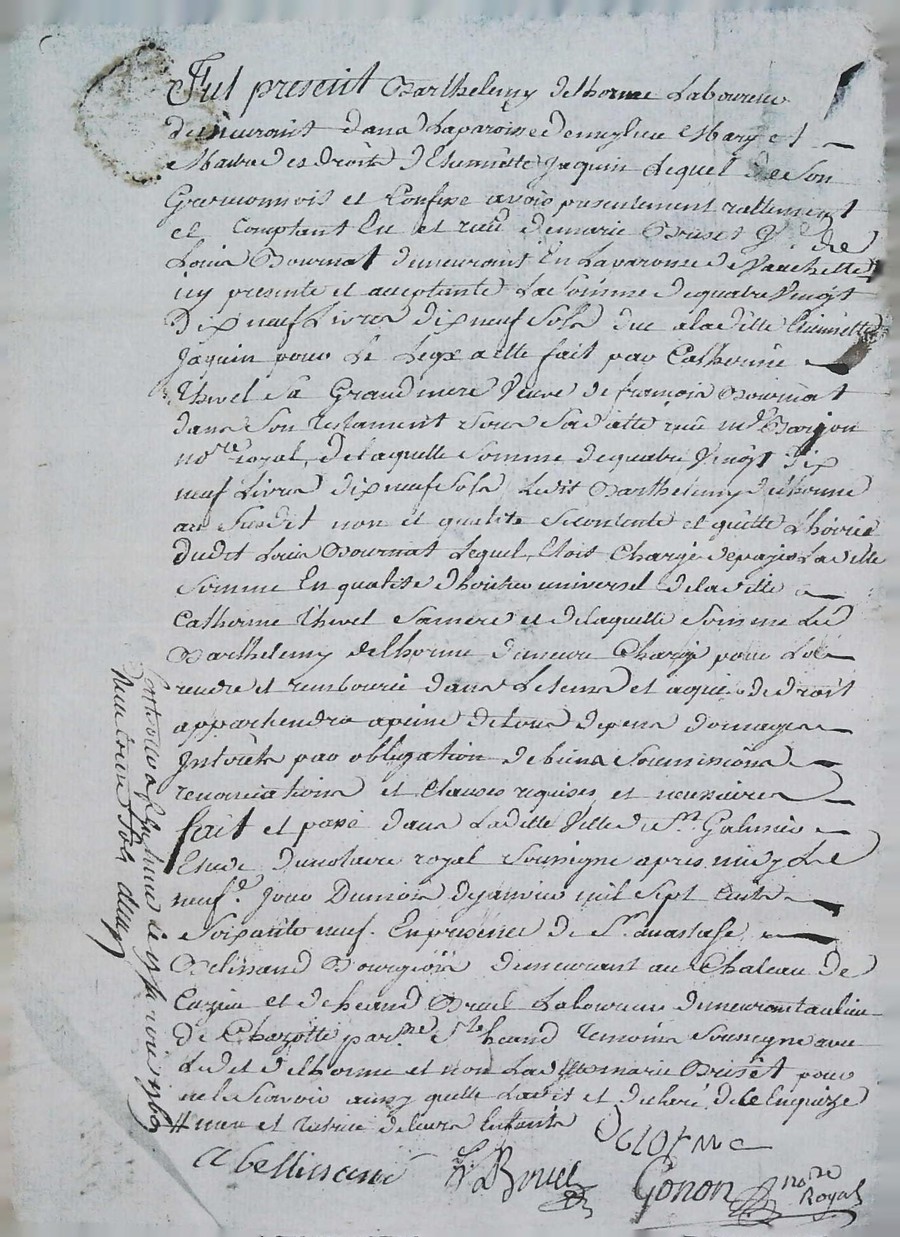 Fut present Barthelemy delhorme Laboureur
demeurant dans Laparoisse demeylieu Mary et
Maitre des droits d'Etiennette Jaquin Lequel de Son
Gré reconnois et Confesse avoir presentement reellement
et Comptant Eu et receu demarie Briset Vve de
Louis Bournat demeurant En Laparoisse de Vauchette
icy presente et acceptante La Somme dequatre Vingt
Dix neuf Livres dix neuf Sols due aladitte Etiennette
Jaquin pour Le Legs a elle fait par Catherine
Thevet Sa Grand mere Veuve de francois Bournat
dans Son testament Sous Sa datte receu Me Barjon
nore royal, de laquelle Somme dequatre Vingt dix
neuf Livres dix neuf Sols Ledit Barthelemy delhorme
au Susdit nom et qualité Se contente et quitte L'hoirie
dudit Louis Bournat Lequel Etoit Chargé depayer Laditte
Somme En qualité d'heritier universel deladitte
Catherine Thevet Samere et delaquelle Somme Led
Barthelemy delhorme demeure Chargé pour La
rendre et rembourcer dans Letems et aqui de droit
appartiendra apeine detous depens domages
Intérêts par obligation de biens Soumissions
renonciations et Clauses requises et necessaires
fait et passé dans Laditte Ville de St Galmier
Etude dunotaire royal Soussigné apres midy Le
neufe. Jour Dumois dejanvier mil Sept Cents
Soixante neuf. En presence de Sr. anastase
Belissand Bourgeois demeurant au Chateau de
et de heand Bruel Laboureur demeurant aulieu
de Chazotte parsse St heand temoins Soussigné avec
Ledit delhorme et non Laditte marie Briset pour
ne le Scavoir ainsy quelle La dit et declaré de ce Enquise
#mere et tutrice deleurs Enfants Delorme
A bellissand Bruel Gonon nore Royal
Controllé a St Galmier le janvier 1769
Reçu treize Sols